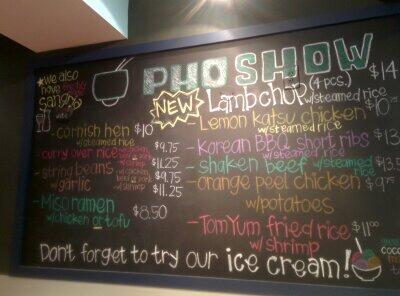 PHO SHOW
* we also
have
Sangria
NEW
Lamb chop (4 pcs.) $14
w/steamed rice
Lemon katsu chicken $10
w/steamed rice
- Korean BBQ short ribs $13
w/steamed rice
- shaken beef w/steamed rice $13.5
- orange peel chicken $9.75
w/potatoes
- Tom Yum fried rice $11.00
w/shrimp
- cornish hen $10
w/steamed rice
- curry over rice $9.75
$11.25
- string beans $9.75
w/garlic w/shrimp $11.25
- Miso ramen $8.50
w/chicken or tofu
Don't forget to try our ice cream!